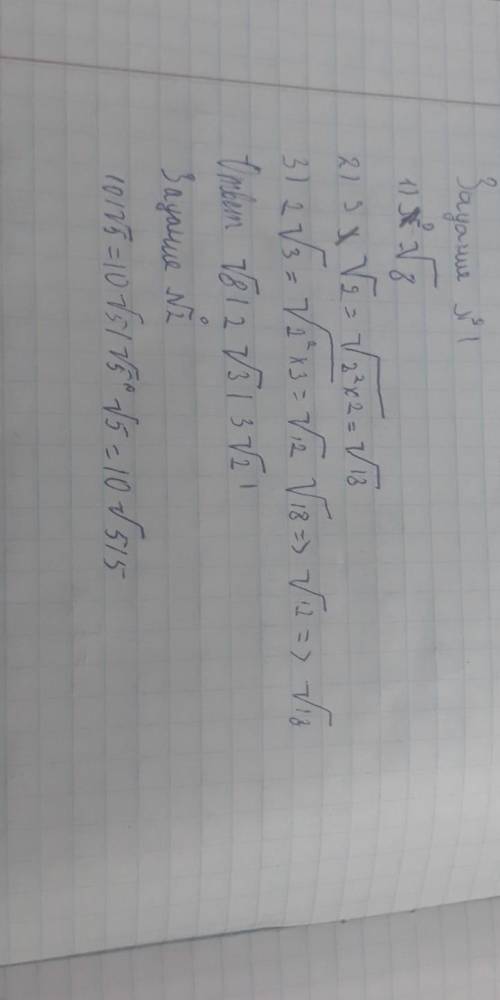 Задание №1
1) √8
2) 3 √2 = √2²x2 = √18
3) 2√3 = √2²x3 = √12 √18 => √12 => √18
Ответ √8 | 2 √3 | 3√2
Задание №2
10/√5 = 10√5/√5 √5 = 10√5/5